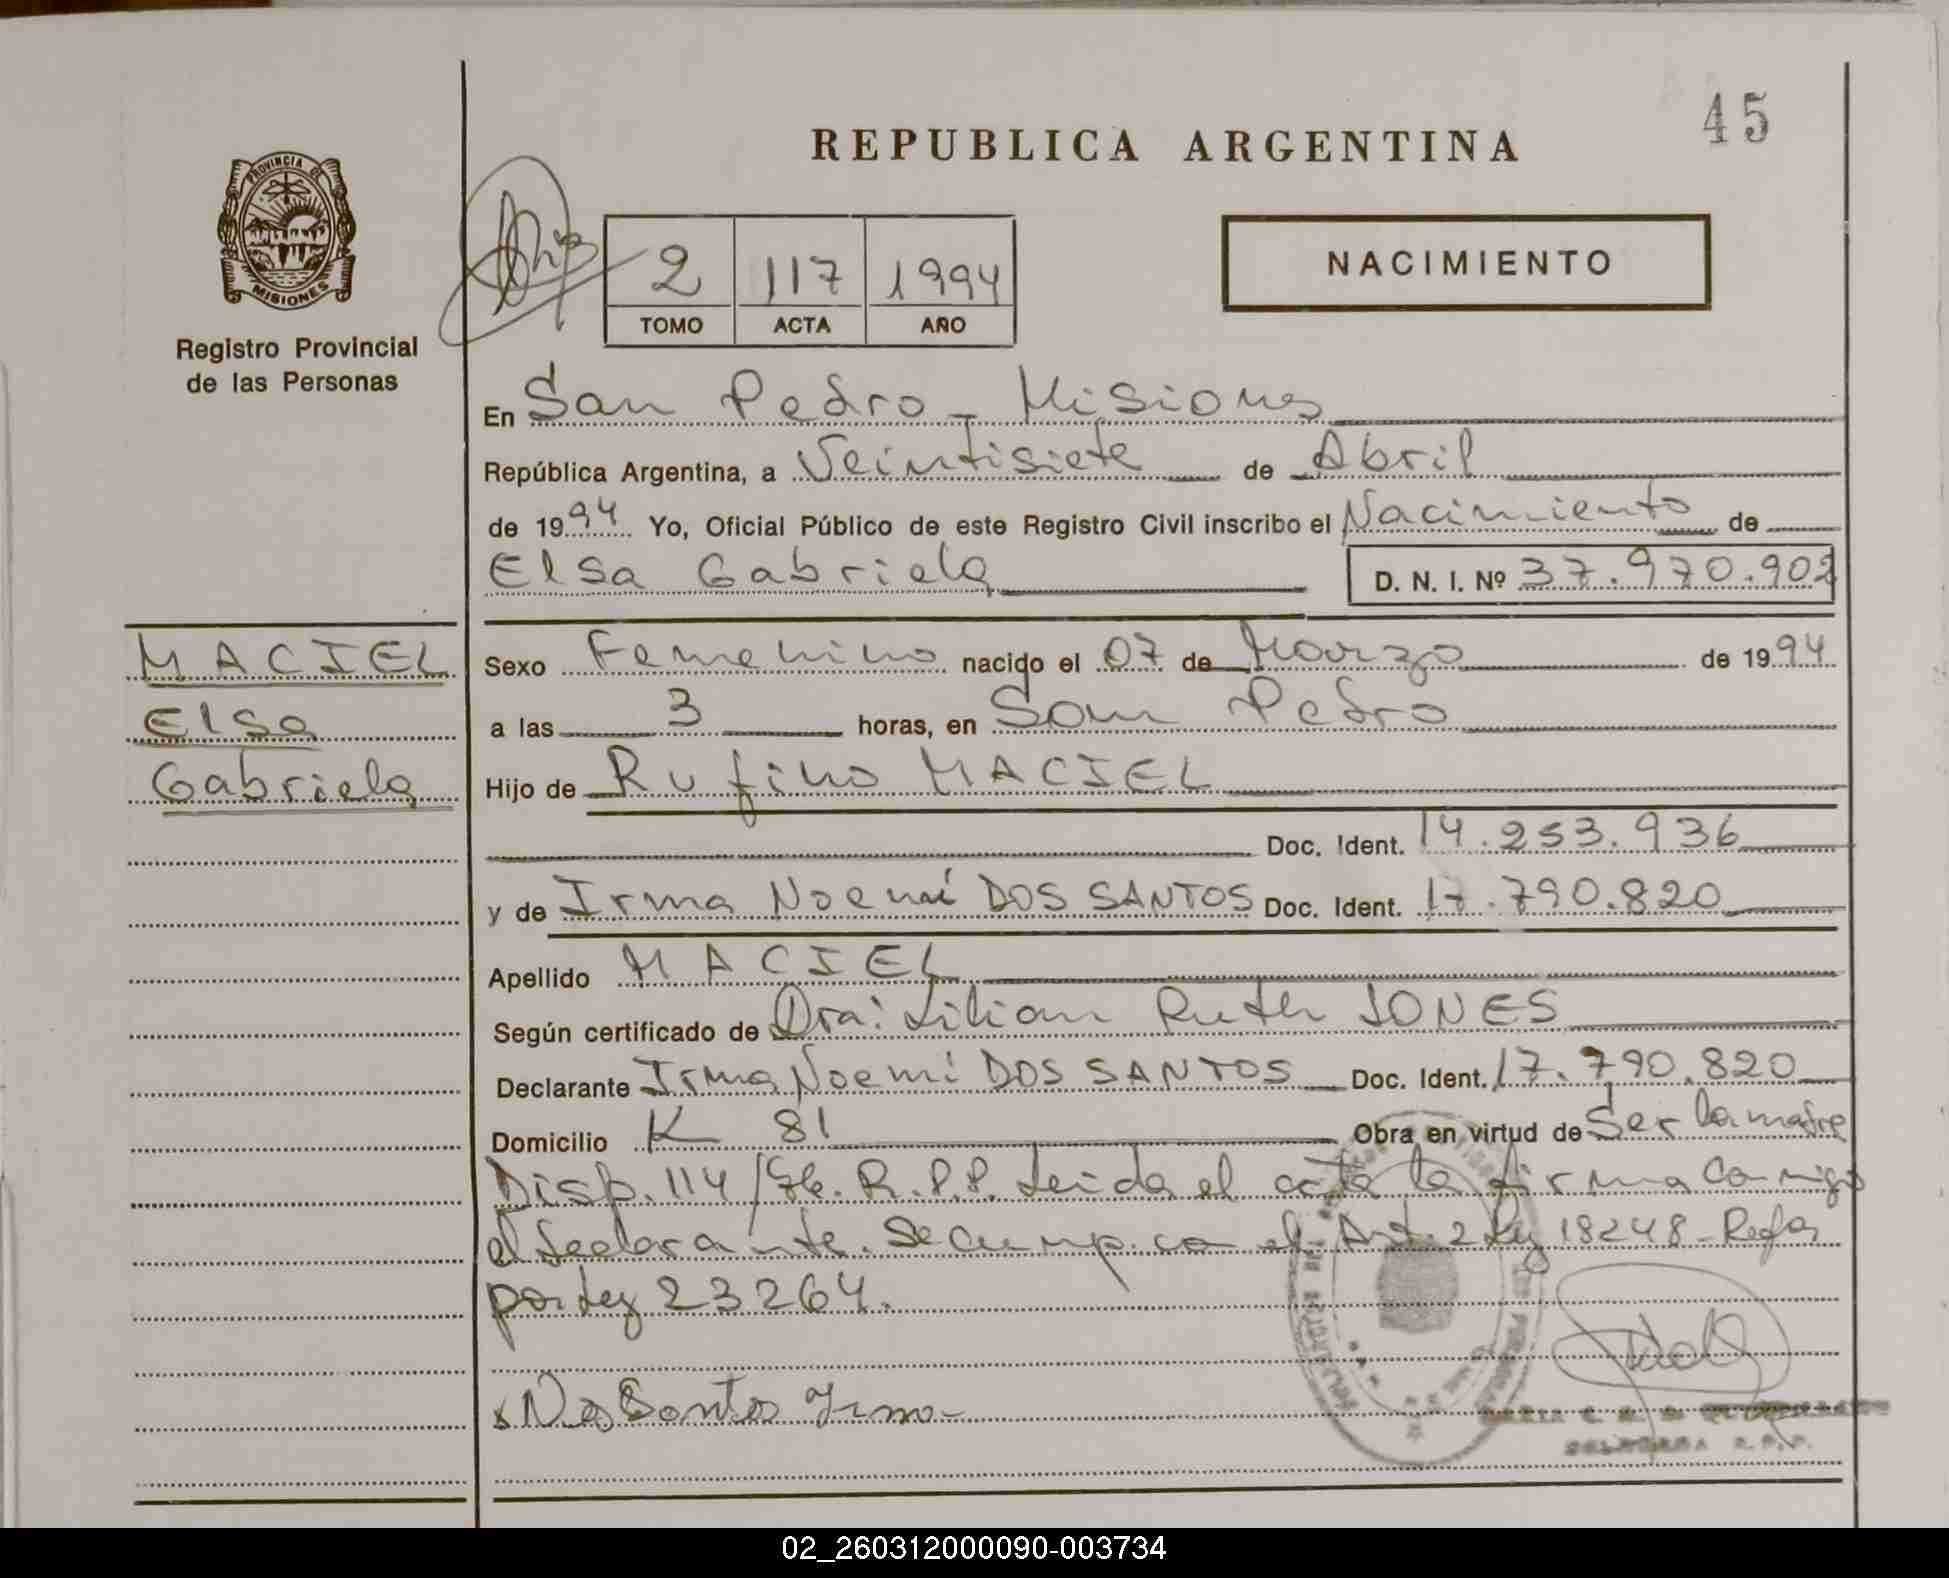 45
REPUBLICA ARGENTINA
PROVINCIA DE
MISIONES
Registro Provincial
de las Personas
2 117 1994
TOMO ACTA AÑO
NACIMIENTO
En San Pedro - Misiones
República Argentina, a Veintisiete de Abril
de 1994 Yo, Oficial Público de este Registro Civil inscribo el Nacimiento de
Elsa Gabriela D. N. I. Nº 37.970.902
MACIEL
Elsa
Gabriela
Sexo Femenino nacido el 07 de Marzo de 1994
a las 3 horas, en San Pedro
Hijo de Rufino MACIEL
Doc. Ident. 14.253.936
y de Irma Noemí DOS SANTOS Doc. Ident. 17.790.820
Apellido MACIEL
Según certificado de Dra: Lilian Ruth JONES
Declarante Irma Noemí DOS SANTOS Doc. Ident. 17.790.820
Domicilio K 81 Obra en virtud de Ser la madre
Disp. 114/86. R.P.P. Leida el acta la firma conmigo
el declarante. Se cump. con el Art. 2 Ley 18248 - Refor
por Ley 23264.
Dos Santos Irma
DELEGADA R.P.P.
02_260312000090-003734